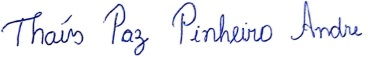 Thaís Paz Pinheiro Andre